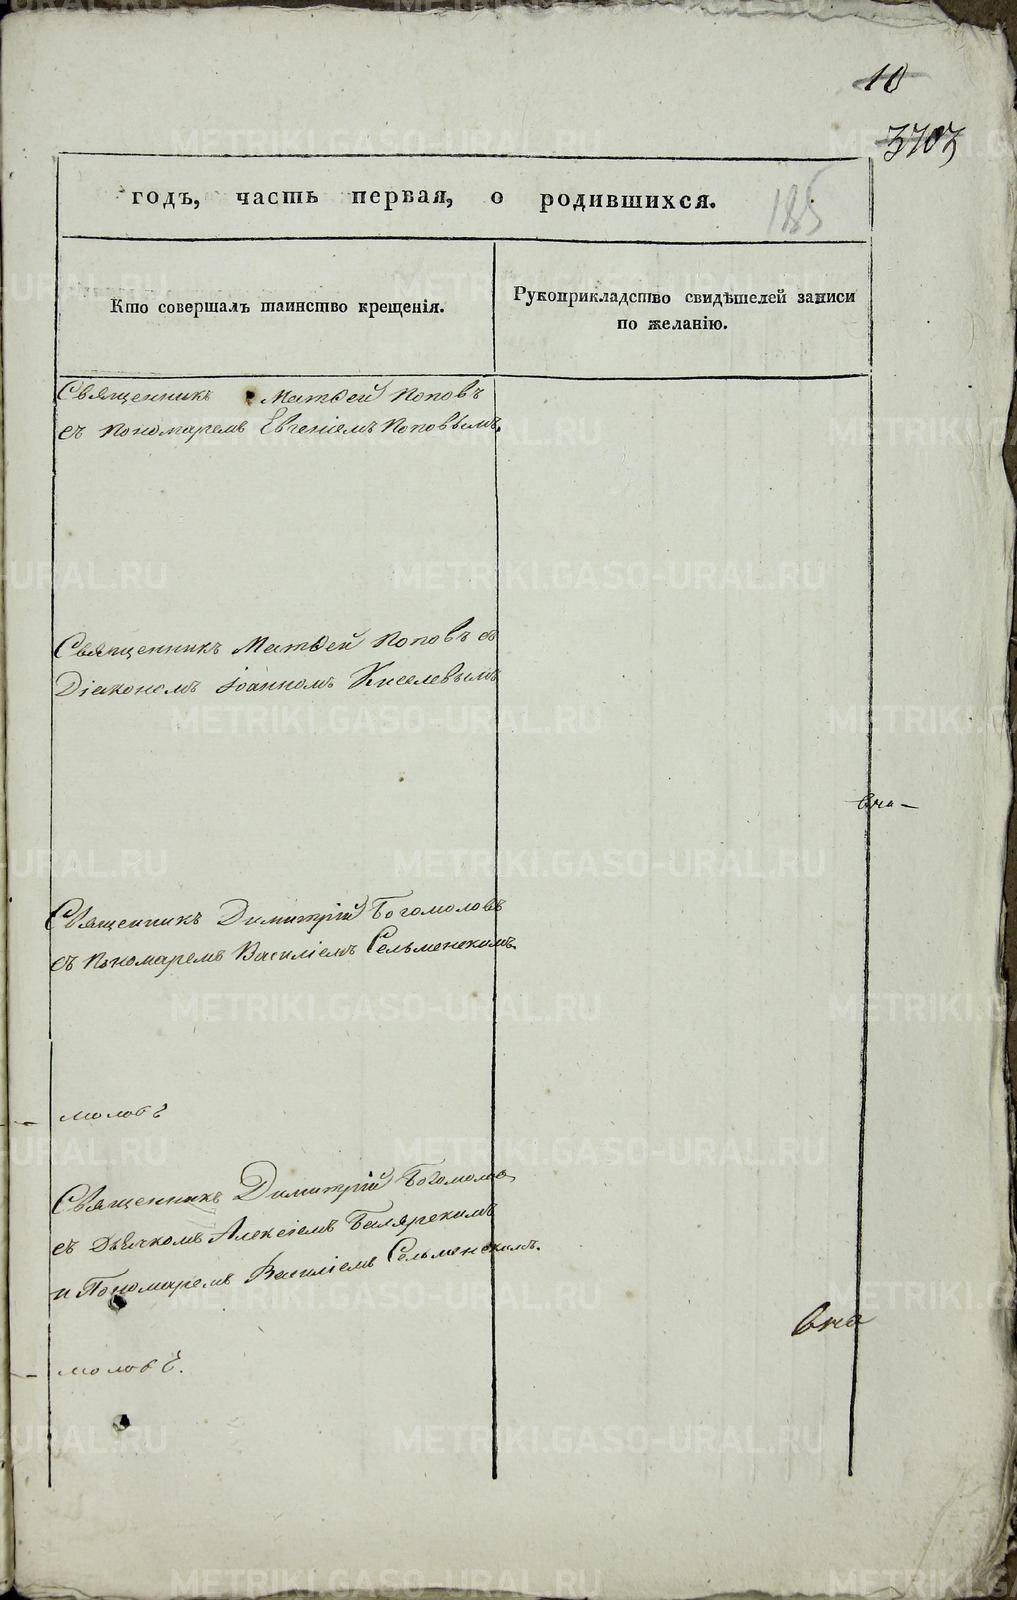 10
3703
185
годъ, часть первая, о родившихся.
Кто совершалъ таинство крещенія.
Рукоприкладство свидѣтелей записи
по желанію.
Священникъ Матѳей Поповъ
съ пономаремъ Евгеніемъ Поповымъ.
Священникъ Матѳей Поповъ съ
Діакономъ Іоанномъ Киселевымъ
Священникъ Димитрій Богомоловъ
съ пономаремъ Василіемъ Сельменскимъ.
моловъ
Священникъ Димитрій Богомоло
съ Дьячкомъ Алексіемъ Балярскимъ
и Пономаремъ Василіемъ Сельменскимъ.
моловъ.
METRIKI.GASO-URAL.RU